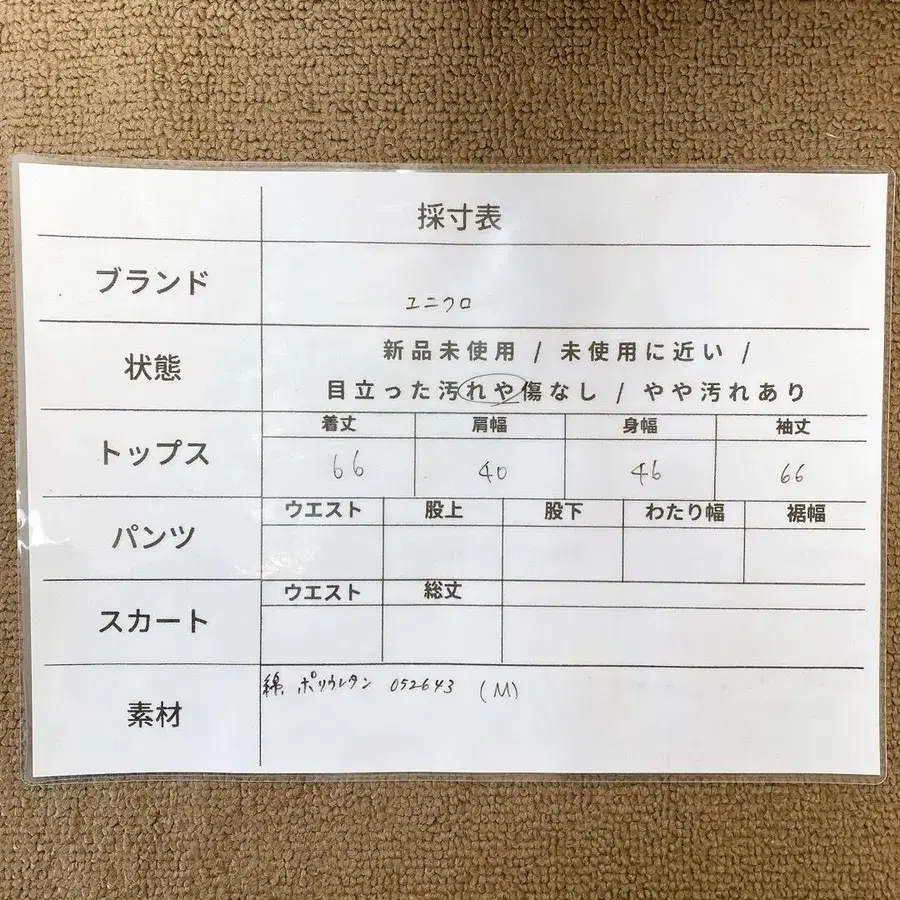 採寸表
ブランド
ユニクロ
状態
新品未使用 / 未使用に近い /
目立った汚れや傷なし / やや汚れあり
トップス
着丈 肩幅 身幅 袖丈
66 40 46 66
パンツ
ウエスト 股上 股下 わたり幅 裾幅
スカート
ウエスト 総丈
素材
綿、ポリウレタン 052643 (M)